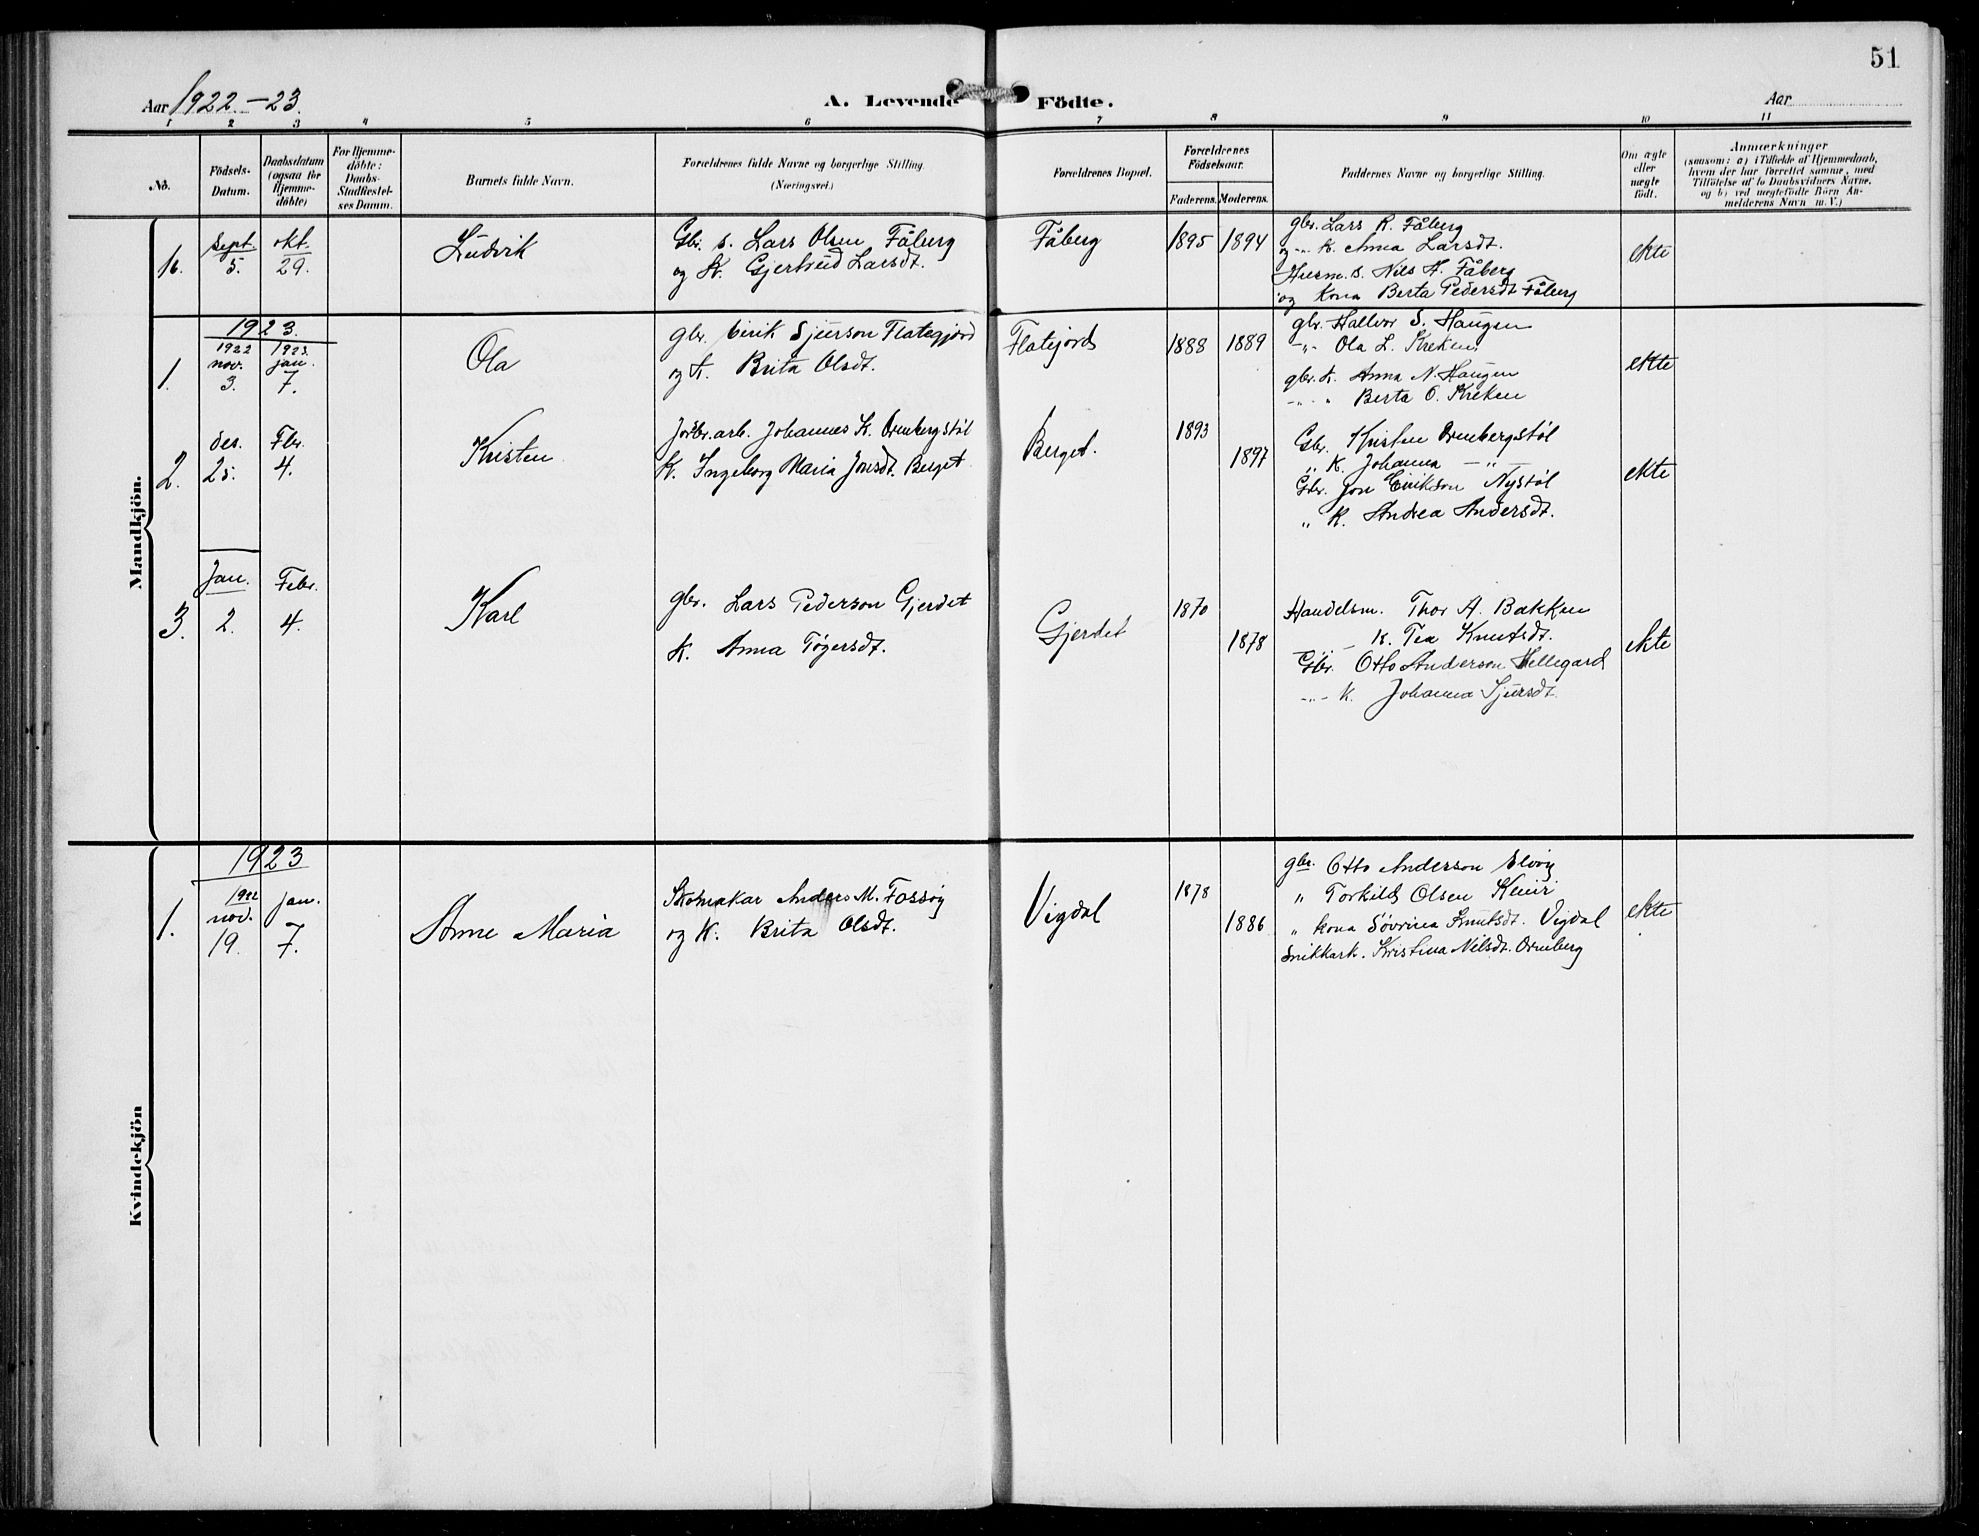 51
Aar 1922.-23.
A. Levende Födte.
Aar
1 2 3 4 5 6 7 8 9 10 11
No.
Födsels-Datum.
Daabsdatum (ogsaa for Hjemme-döbte)
For Hjemme-döbte: Daabs-Stadfæstel-ses Datum.
Barnets fulde Navn.
Forældrenes fulde Navne og borgerlige Stilling (Næringsvei.)
Forældrenes Bopæl.
Forældrenes Födselsaar.
Faderens. Moderens.
Faddernes Navne og borgerlige Stilling.
Om ægte eller uægte födt.
Anmærkninger
(saasom: a) i Tilfælde af Hjemmedaab,
hvem der har forrettet samme, med
Tilföielse af to Daabsvidners Navne,
og b) ved uægtefödte Börn An-
melderens Navn m. V.)
Mandkjön.
16. sept. 5. okt. 29.
Ludvik
Gbr. s. Lars Olsen Fåberg
og K. Gjertrud Larsdt.
Fåberg
1895 1894
gbr. Lars R. Fåberg
og -"- K. Anna Larsdt.
Husm. s. Nils H. Fåberg
og Kona Berta Pedersdt Fåberg
ekte
1923.
1. 1922 nov. 3. 1923. jan. 7.
Ola
gbr. Eirik Sjurson Flategjord
og K. Brita Olsdt.
Flatejord
1888 1889
gbr. Hallvor S. Haugen
-"- Ola L. Kreken
gbr. K. Anna N. Haugen
-"- " Berta O. Kreken
ekte
2. des. 25. Fbr. 4.
Kristen
Jordbr. arb. Johannes K. Ormbergstøl
K. Ingeborg Maria Jonsdt. Berget
Berget.
1893
1897
Gbr. Kristen Ormbergstøl
" K. Johanna -"-
Gbr. Jon Eirikson Nystøl
" K. Andrea Andersdt.
ekte
3. Jan. 2. Febr. 4.
Karl
gbr. Lars Pederson Gjerdet
K. Anna Tøgersdt.
Gjerdet
1870
1878
Handelsm. Thor A. Bakken
-"- K. Tea Knutsdt.
Gbr. Otto Anderson Hellegard
-"- K. Johanna Sjursdt.
ekte
Kvindekjön
1923
1. 1922 nov. 19. jan. 7.
Anne Maria
Skomakar Anders M. Fossøy
og K. Brita Olsdt.
Vigdal
1878
1886
gbr. Otto Anderson Elvøy
" Torkild Olsen Kveir
" kona Søvrina Knutsdt. Vigdal
Snikkark. Kristina Nilsdt. Ormberg
ekte